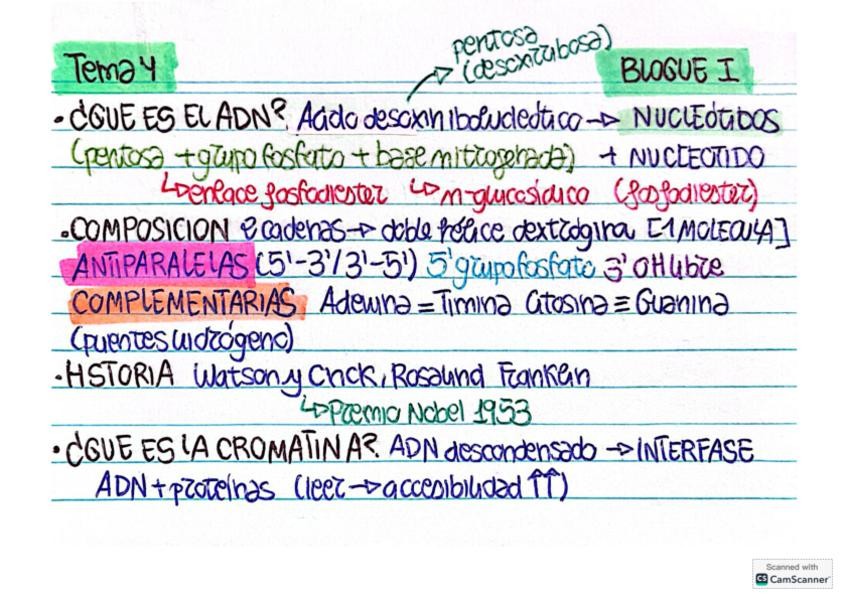 pentosa
(desoxirribosa)
Tema 4
BLOQUE I
• ¿QUE ES EL ADN? Acido desoxirribolucleótico → NUCLEÓTIDOS
(pentosa + grupo fosfato + base nitrogenada) + NUCLEOTIDO
↳ enlace fosfodiester ↳ n-glucosídico (fosfodiester)
• COMPOSICION 2 cadenas → doble hélice dextrógira [1 MOLECULA]
ANTIPARALELAS (5'-3'/3'-5') 5' grupo fosfato 3' OH libre
COMPLEMENTARIAS Adenina = Timina Citosina ≡ Guanina
(puentes hidrógeno)
• HSTORIA Watson y Crick, Rosalind Franklin
↳ Premio Nobel 1953
• ¿QUE ES LA CROMATINA?. ADN descondensado → INTERFASE
ADN + proteínas (leer → accesibilidad ↑↑)
Scanned with
CS CamScanner